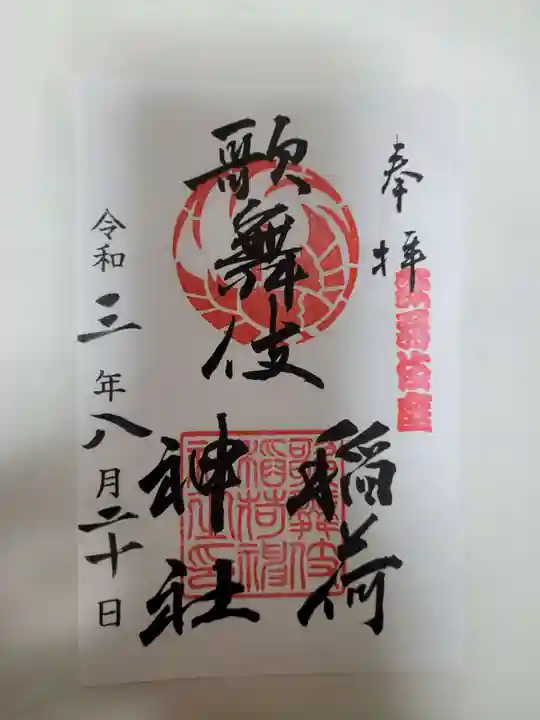 奉拝
歌舞伎座
歌舞伎
稲荷
神社
歌舞伎稲荷神社印
令和三年八月二十日